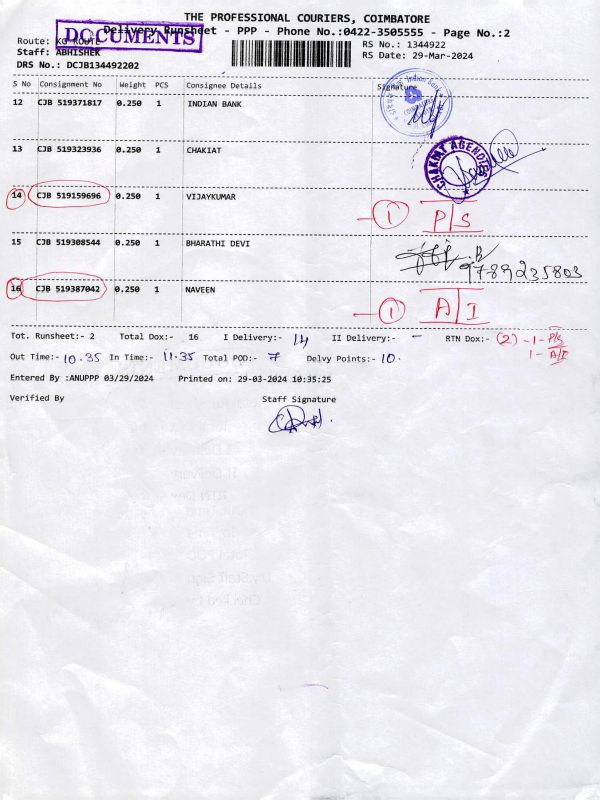 THE PROFESSIONAL COURIERS, COIMBATORE
Delivery Runsheet - PPP - Phone No.:0422-3505555 - Page No.:2
DOCUMENTS
Route: KG ROUTE
RS No.: 1344922
Staff: ABHISHEK
RS Date: 29-Mar-2024
DRS No.: DCJB134492202
S No Consignment No Weight PCS Consignee Details Signature
12 CJB 519371817 0.250 1 INDIAN BANK
Indian Bank
13 CJB 519323936 0.250 1 CHAKIAT
CHAKIAT AGENCIES
14 CJB 519159696 0.250 1 VIJAYKUMAR
1 P/S
15 CJB 519308544 0.250 1 BHARATHI DEVI
9789235803
16 CJB 519387042 0.250 1 NAVEEN
1 A/I
Tot. Runsheet:- 2 Total Dox:- 16 I Delivery:- 14 II Delivery:- - RTN Dox:- (2) - 1 - P/S
1 - A/I
Out Time:- 10.35 In Time:- 11.35 Total POD:- 7 Delvy Points:- 10.
Entered By :ANUPPP 03/29/2024 Printed on: 29-03-2024 10:35:25
Verified By Staff Signature